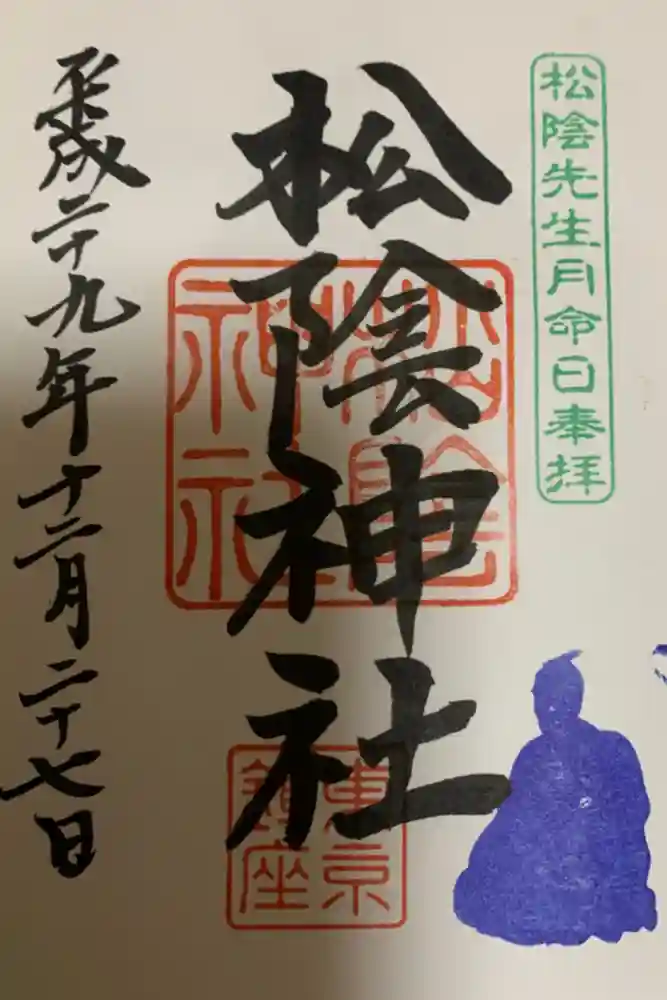 松陰先生月命日奉拝
松陰神社
松陰神社
東京鎮座
平成二十九年十二月二十七日